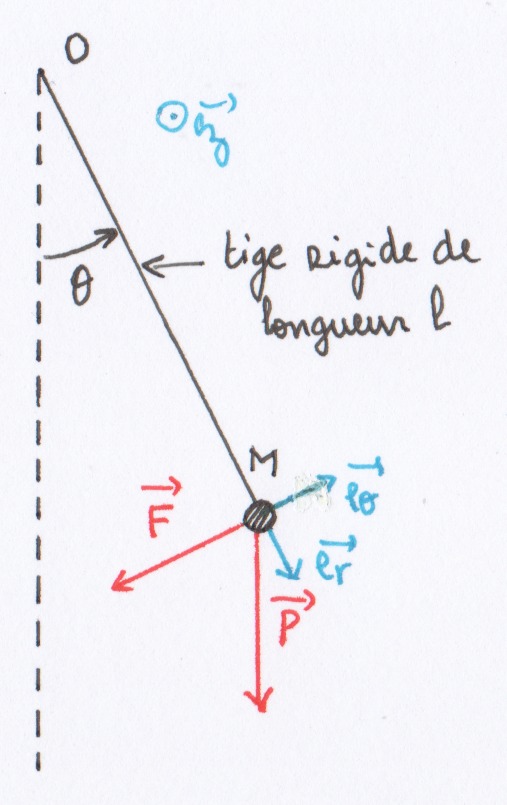 O
e⃗z
θ
tige rigide de
longueur l
M
F⃗
e⃗θ
e⃗r
P⃗